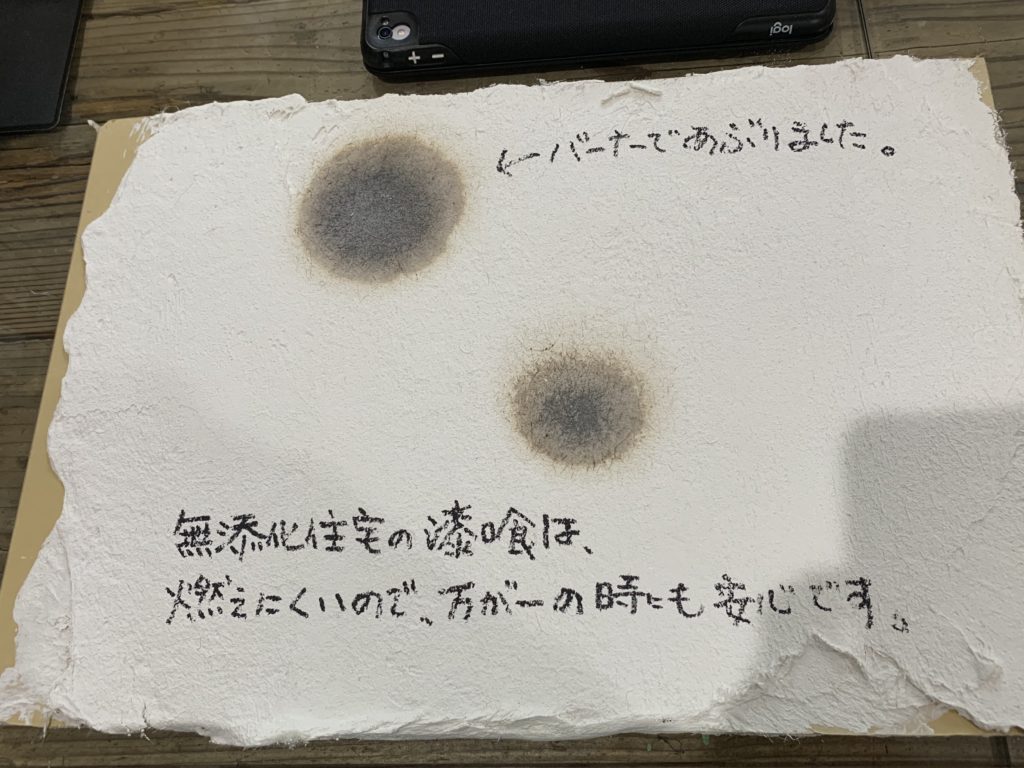 logi
←バーナーであぶりました。
無添化住宅の漆喰は、
燃えにくいので、万が一の時にも安心です。